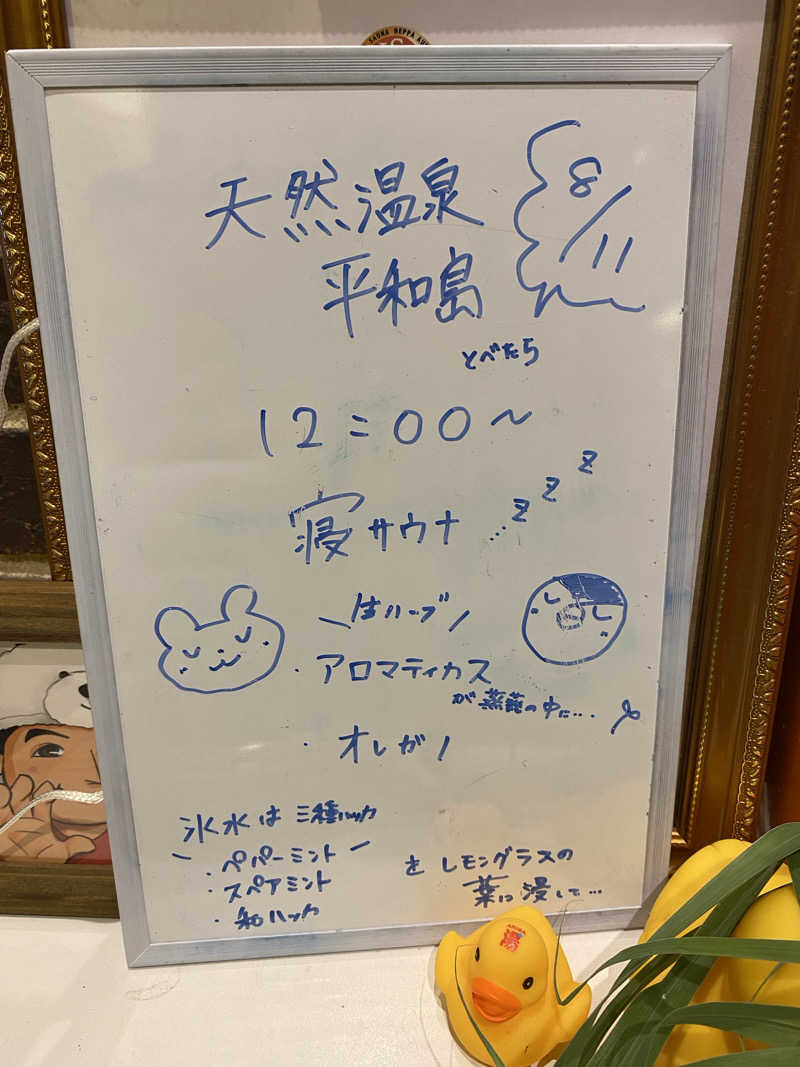 天然温泉
平和島
8/11
とべたら
12:00~
寝サウナ …zzz
\生ハーブ/
・アロマティカス
が蒸籠の中に…
・オレガノ
氷水は三種ハッカ
・ペパーミント
・スペアミント
・和ハッカ
を レモングラスの
葉に浸して…